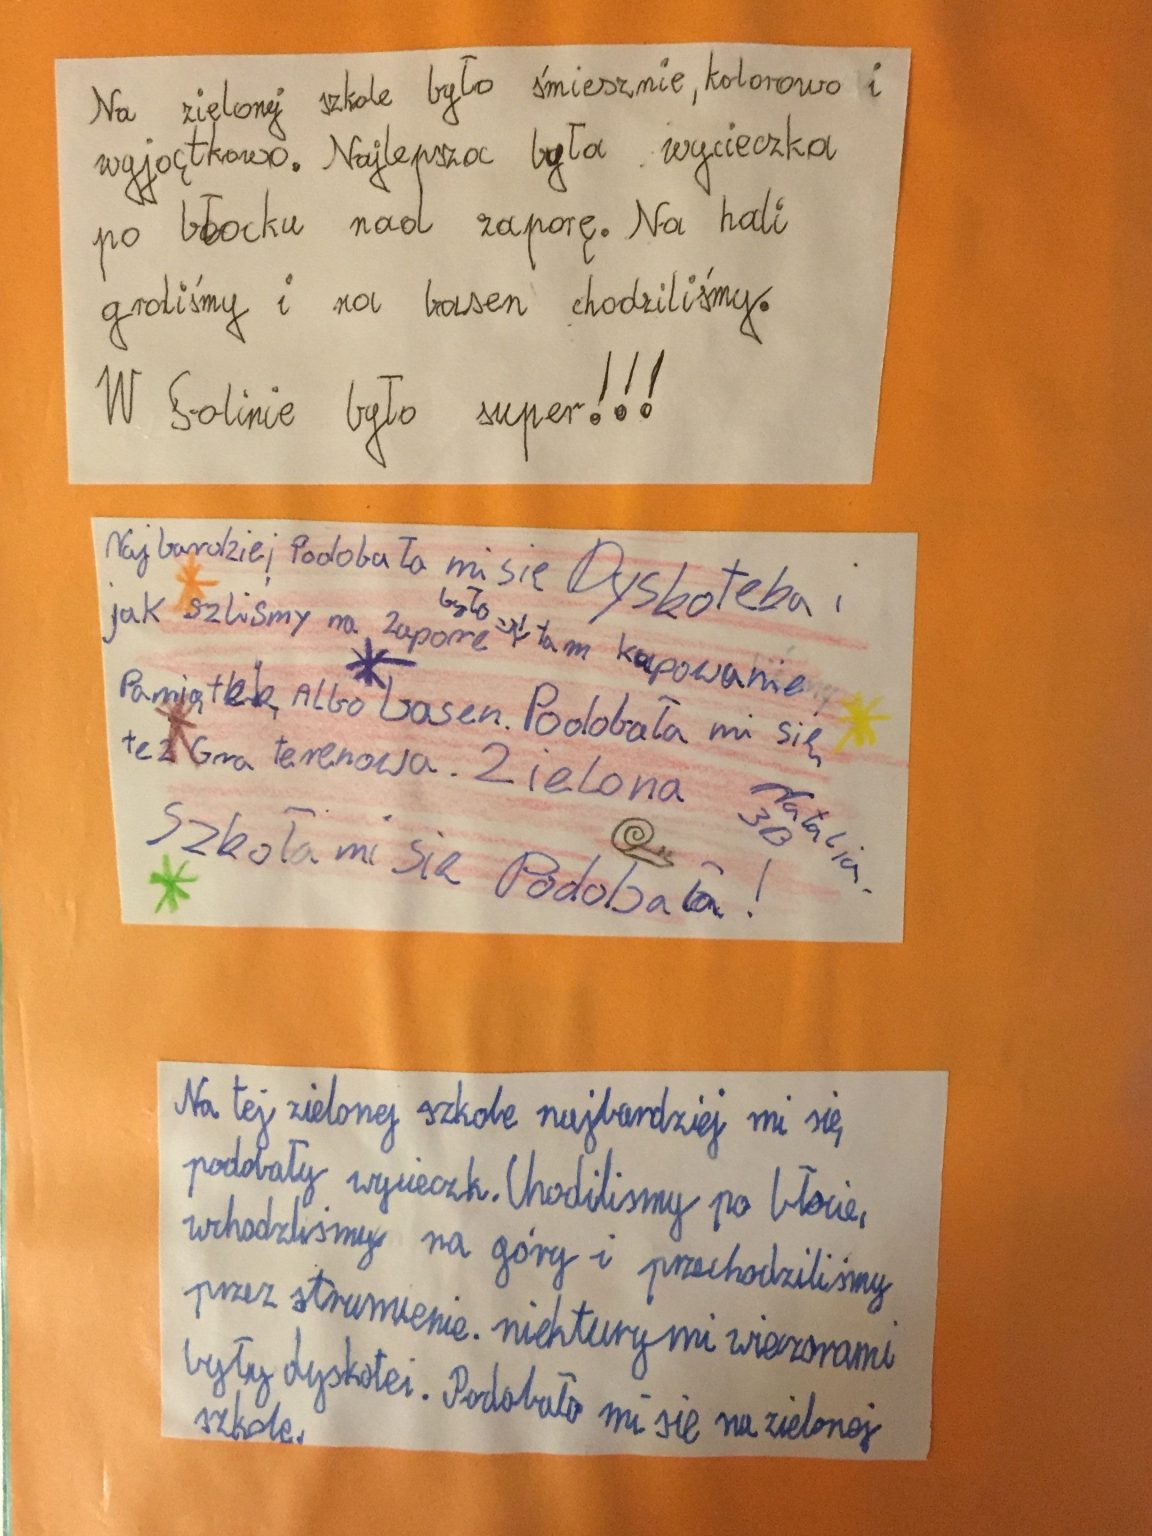 Na zielonej szkole było śmiesznie, kolorowo i
wyjątkowo. Najlepsza była wycieczka
po błocku nad zaporę. Na hali
graliśmy i na basen chodziliśmy.
W Solinie było super!!!
Najbardziej Podobała mi się Dyskoteka i
jak szliśmy na Zaporę było tam kupowanie
Pamiątek, Albo basen. Podobała mi się
też Gra terenowa. Zielona
Szkoła mi się Podobała!
Natalia
3B
Na tej zielonej szkole najbardziej mi się
podobały wycieczk. Chodiliśmy po błocie,
wchodzliśmy na góry i przechodziliśmy
przez strumienie. niektury mi wieczorami
były dyskotei. Podobało mi się na zielonej
szkole.